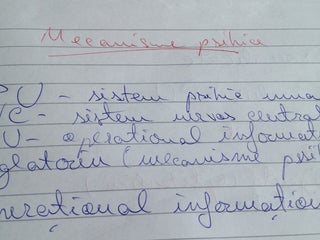 Mecanisme psihice
PU - sistem psihic uma
C - sistem nervos central
U - operațional informaț
glatorii (mecanisme psi
erațional informațion